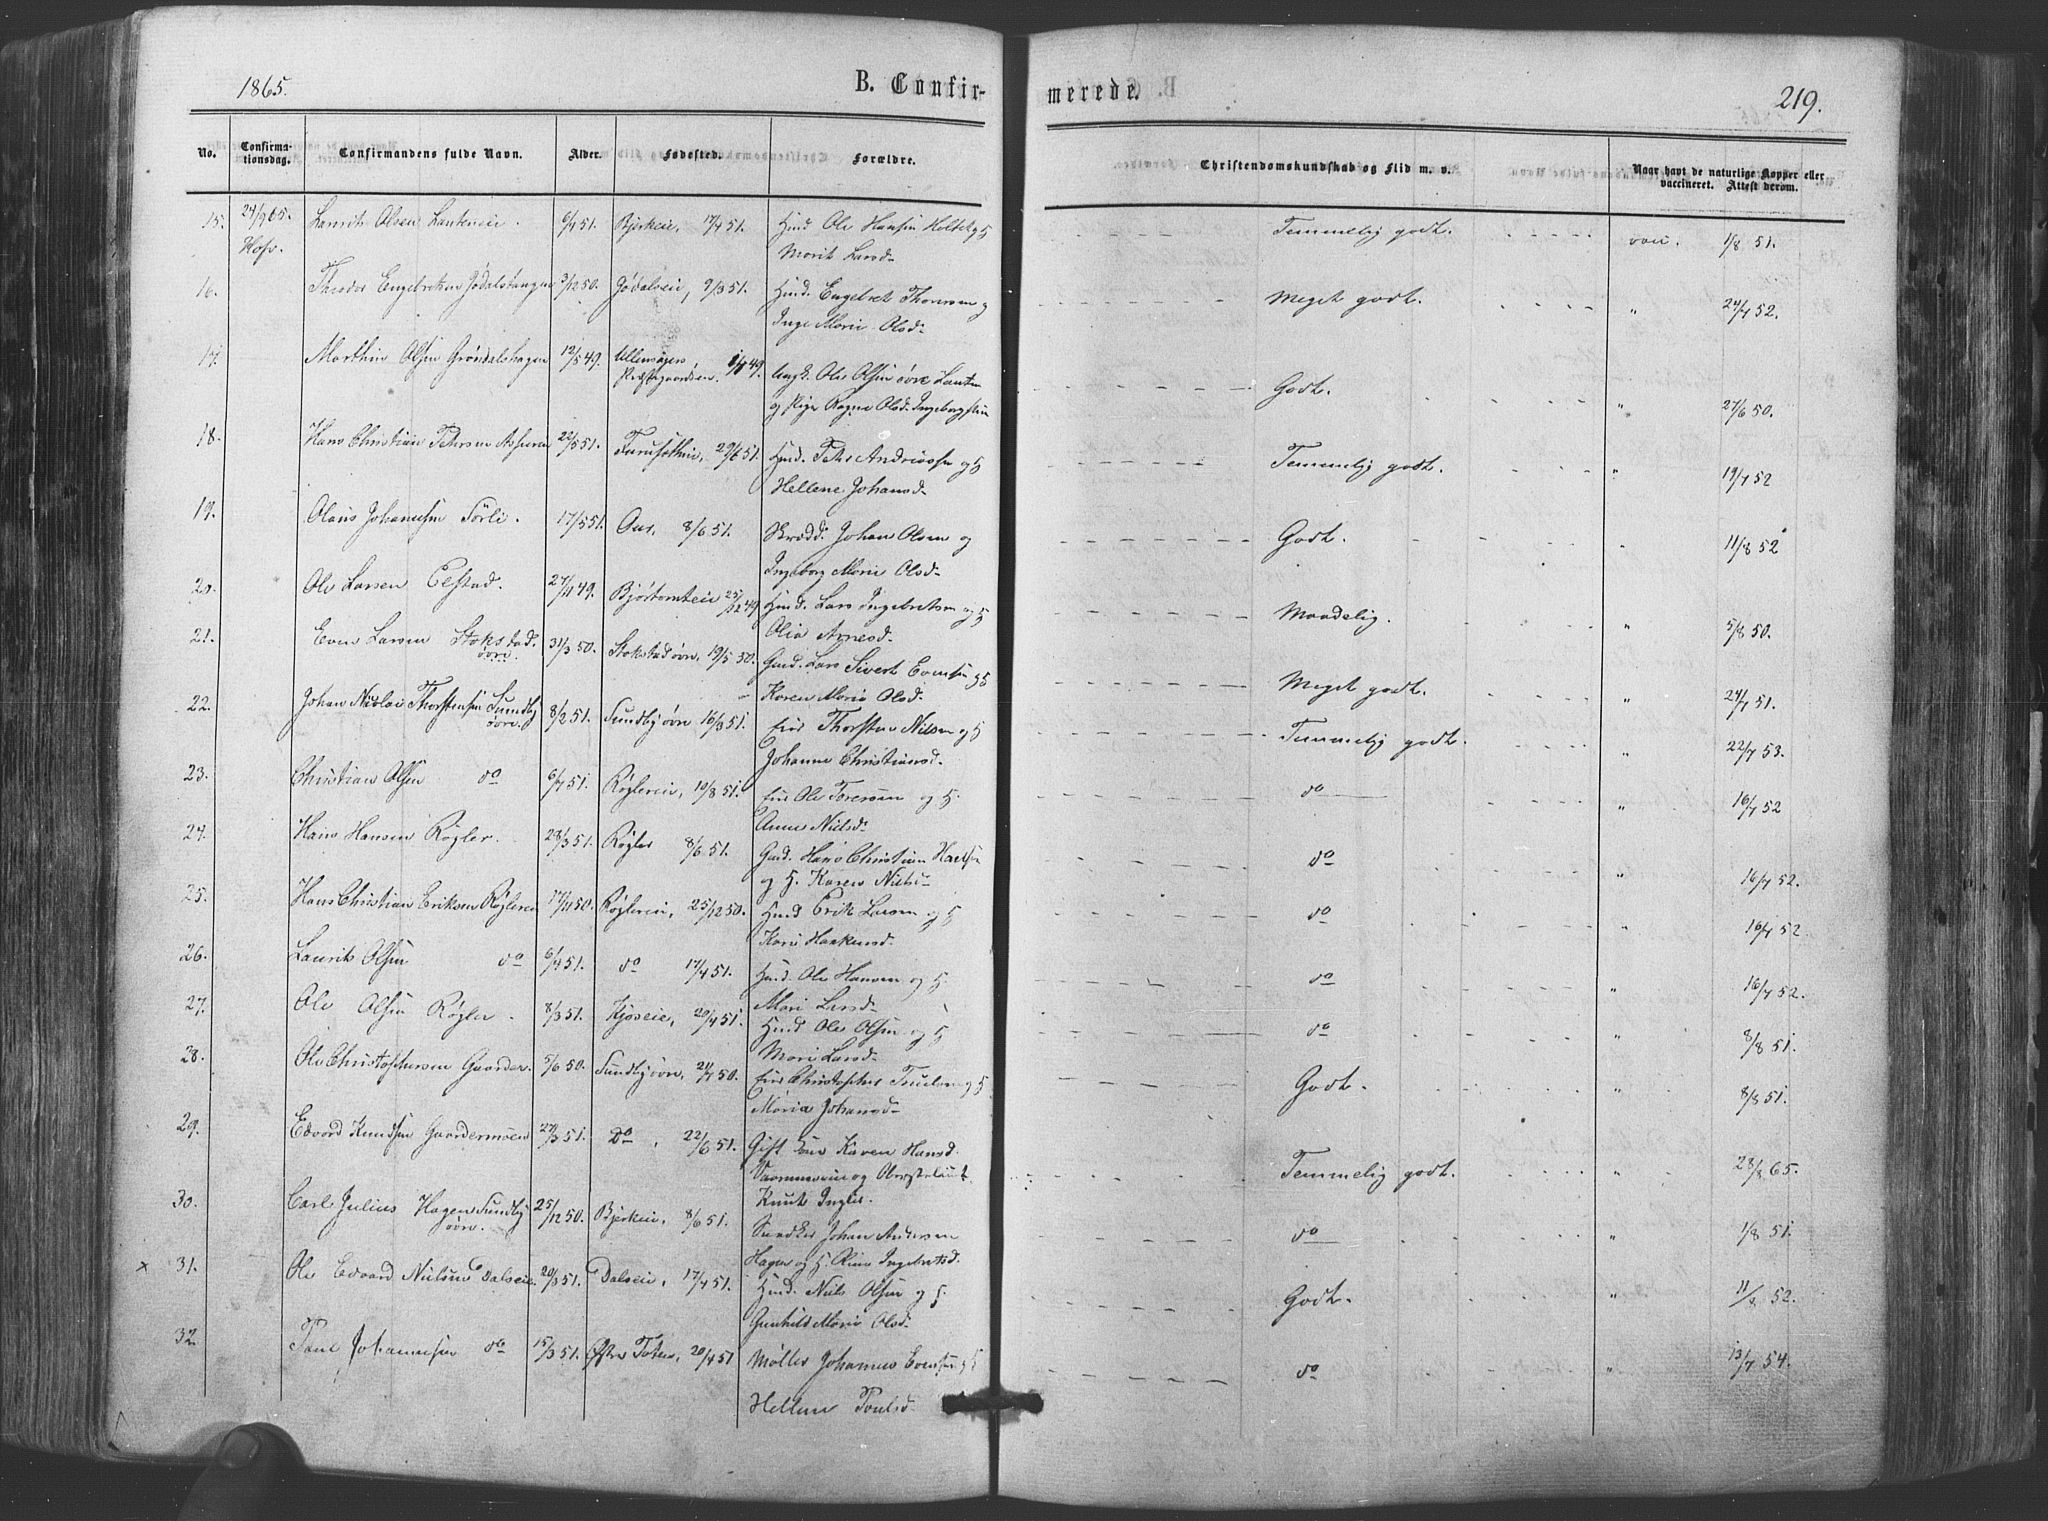 1865. B. Confir- merede. 219.
No. Confirma- tionsdag. Confirmandens fulde Navn. Alder. Fødested. Forældre. Christendomskundskab og Flid m. v. Naar havt de naturlige Kopper eller vaccineret. Attest derom.
15. 24/9 65. Laurits Olsen 6/4 51. Bjerkeie, 17/4 51. Huusmd. Ole Hansen Holtet og H Temmelig godt. vac. 1/8 51.
Hof. Marit Larsd.
16. Theodor Engebretsen Jødalstangen 3/12 50. Jødalseie, 9/3 51. Huusmd. Engebret Thorersen og Meget godt. " 24/7 52.
Inge Marie Olsd.
17. Marthin Olsen Grøndalshagen 12/5 49. Ullensagers Præstegaardseie. 1/7 49. Ungk. Ole Olsen øvre Lauten Godt. " 27/6 50.
og Pige Ragne Olsd.
18. Hans Christian Petersen 22/5 51. 29/6 51. Huusmd. Peter Andreassen og H Temmelig godt. " 19/7 52
Hellene Johansd.
19. Olaus Johannesen Sørli. 17/5 51. Aur, 8/6 51. Skrædd. Johan Olsen og Godt. " 11/8 52
Ingeborg Marie Olsd.
20. Ole Larsen Elstad. 27/11 49. Bjørtomteie 25/12 49 Huusmd. Lars Ingebretsen og H Maadelig. " 5/8 50.
Olia Arnesd.
21. Even Larsen Stokstad øvre. 31/3 50. Stokstad øvn, 19/5 50. Gmd. Lars Sivert Evensen og H Meget godt. " 24/7 51.
Karen Marie Olsd.
22. Johan Nicolai Thorstensen Sundby øvre. 8/2 51. Sundby øvn 16/3 51. Eier Thorsten Nilsen og H Temmelig godt. " 22/7 53.
Johanne Christiansd.
23. Christian Olsen do 6/7 51. Røglereie, 10/8 51. Eier Ole Toresen og H. do " 16/7 52
Anne Nielsd.
24. Hans Hansen Røgler. 28/3 51. Røgler 8/6 51. Gmd. Hans Christian Hansen do " 16/7 52.
og H. Karen Nielsd.
25. Hans Christian Eriksen Røglereie 17/11 50. Røglereie, 25/12 50. Husmd Erik Larsen og H do " 16/7 52
Kari Haakensd.
26. Laurits Olsen do 6/4 51. do 17/4 51. Husmd. Ole Hansen og H. do " 16/7 52.
Mari Larsd.
27. Ole Olsen Røgler. 8/3 51. Kjøseie, 20/4 51. Husmd Ole Olsen og H do " 8/8 51.
Mari Larsd.
28. Ole Christophersen Gaarder. 5/6 50. Sundby øvn, 21/7 50. Eier Christopher Truelsen og H Godt. " 8/8 51.
Maria Johansd.
29. Edvard Knudsen Gaardermoen 27/3 51. Do, 22/6 51. Gift Karen Hansd. Temmelig godt. " 28/8 65.
og
Knut Ingier.
30. Carl Julius Hagen Sundby øvre. 25/12 50. Bjerkeie, 8/6 51. Snedker Johan Andersen do " 1/8 51.
Hagen og H. Oline Ingebretsd.
x 31. Ole Edvard Nielsen Dalseie. 20/3 51. Dalseie, 17/4 51. Husmd. Niels Olsen og H. Godt. " 11/8 52.
Gunhild Marie Olsd.
32. Paul Johannesen do 15/3 51. Østre Toten, 20/4 51 Møller Johannes Evensen og H do " 13/7 54.
Hellene Paulsd.